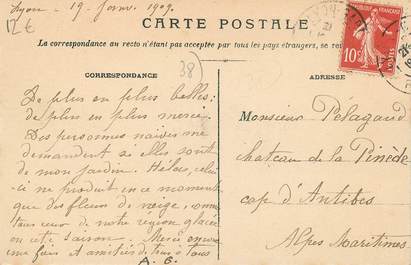 Lyon - 19 Janv. 1909.
12€
CARTE POSTALE
La correspondance au recto n'étant pas acceptée par tous les pays étrangers, se
38
CORRESPONDANCE
ADRESSE
10
De plus en plus belles;
de plus en plus merci.
Des personnes naives me
demandent si elles sont
de mon jardin. Hélas, celui
-ci ne produit en ce moment
que des fleurs de neige, comme
tous ceux de notre région glacée
en cette saison. Merci encore
une fois et amitiés de tous à tous
A. G.
Monsieur Pélagaud
chateau de la Pinède
cap d'Antibes
Alpes Maritimes